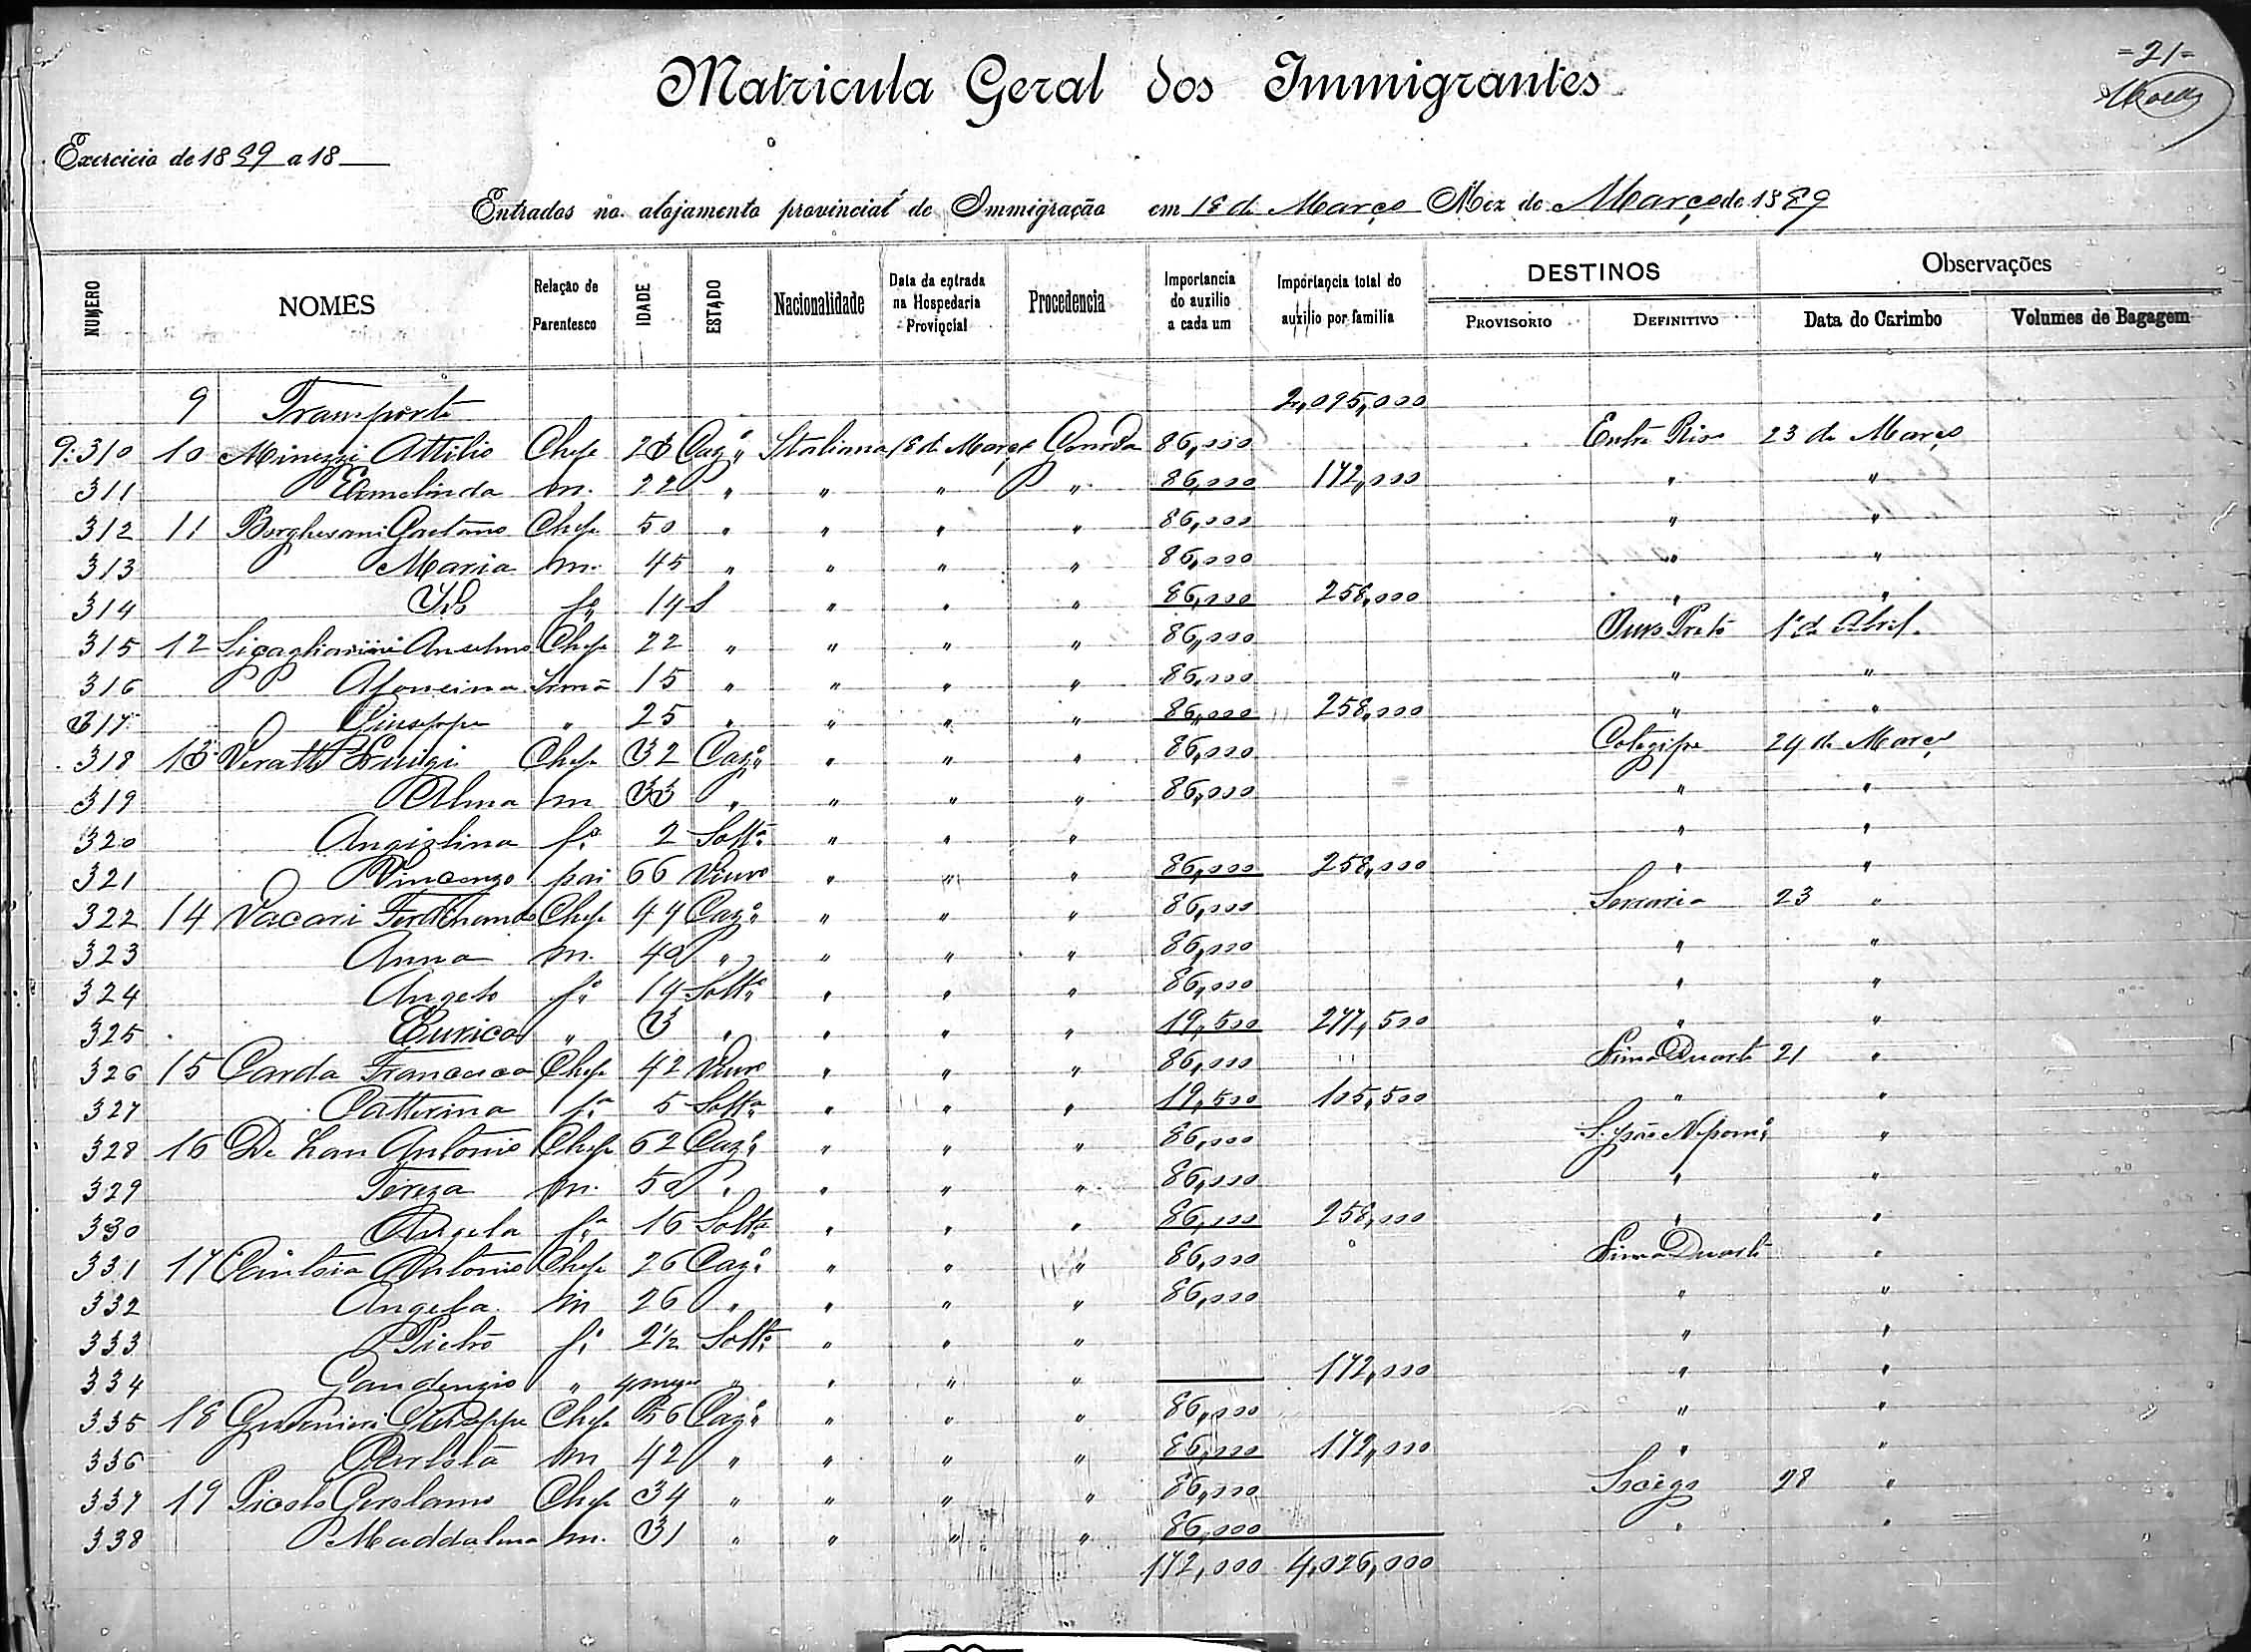 =21=
Matricula Geral dos Immigrantes
Exercicio de 1889 a 18
Entrados no alojamento provincial de Immigração em 18 de Março Mez de Março de 1889
NUMERO NOMES Relação de Parentesco IDADE ESTADO Nacionalidade Data da entrada na Hospedaria Provincial Procedencia Importancia do auxilio a cada um Importancia total do auxilio por familia DESTINOS PROVISORIO DEFINITIVO Observações Data do Carimbo Volumes de Bagagem
9 Transporte 2,095,000
9:310 10 Minezzi Attilio Chefe 28 Caz.º Italiana 18 de Março Genova 86,000 Entre Rios 23 de Março
311 Ermelinda m. 22 " " " " 86,000 172,000 " "
312 11 Borghesani Gaetano Chefe 50 " " " " 86,000 " "
313 Maria m. 45 " " " " 86,000 " "
314 fº 14 S " " " 86,000 258,000 " "
315 12 Anselmo Chefe 22 " " " " 86,000 Ouro Preto 1º de Abril
316 Irmã 15 " " " " 86,000 " "
317 Giuseppe " 25 " " " " 86,000 258,000 " "
318 13 Veratti Luigi Chefe 32 Caz.º " " " 86,000 Cotegipe 24 de Março
319 Alma m 33 " " " " 86,000 " "
320 Angiolina fª 2 Soltª " " " " "
321 Vincenzo pai 66 Viuvo " " " 86,000 258,000 " "
322 14 Vacari Ferdinando Chefe 44 Caz.º " " " 86,000 Serraria 23 "
323 Anna m. 40 " " " " 86,000 " "
324 Angelo fº 14 Soltº " " " 86,000 " "
325 Eurica " 3 " " " " 19,500 277,500 " "
326 15 Carda Francesco Chefe 42 Viuvo " " " 86,000 Lima Duarte 21 "
327 Catterina fª 5 Soltª " " " 19,500 105,500 " "
328 16 De Antonio Chefe 62 Caz.º " " " 86,000 S. João Nepomº "
329 Tereza m. 50 " " " " 86,000 " "
330 Angela fª 16 Soltª " " " 86,000 258,000 " "
331 17 Antonio Chefe 26 Caz.º " " " 86,000 Lima Duarte "
332 Angela m 26 " " " " 86,000 " "
333 Pietro fº 2 1/2 Soltº " " " " "
334 Gaudenzio " 4 mezes " " " " 172,000 " "
335 18 Giuseppe Chefe 56 Caz.º " " " 86,000 " "
336 m 42 " " " " 86,000 172,000 " "
337 19 Picolo Gerolamo Chefe 34 " " " " 86,000 28 "
338 Maddalena m. 31 " " " " 86,000 " "
172,000 4,026,000